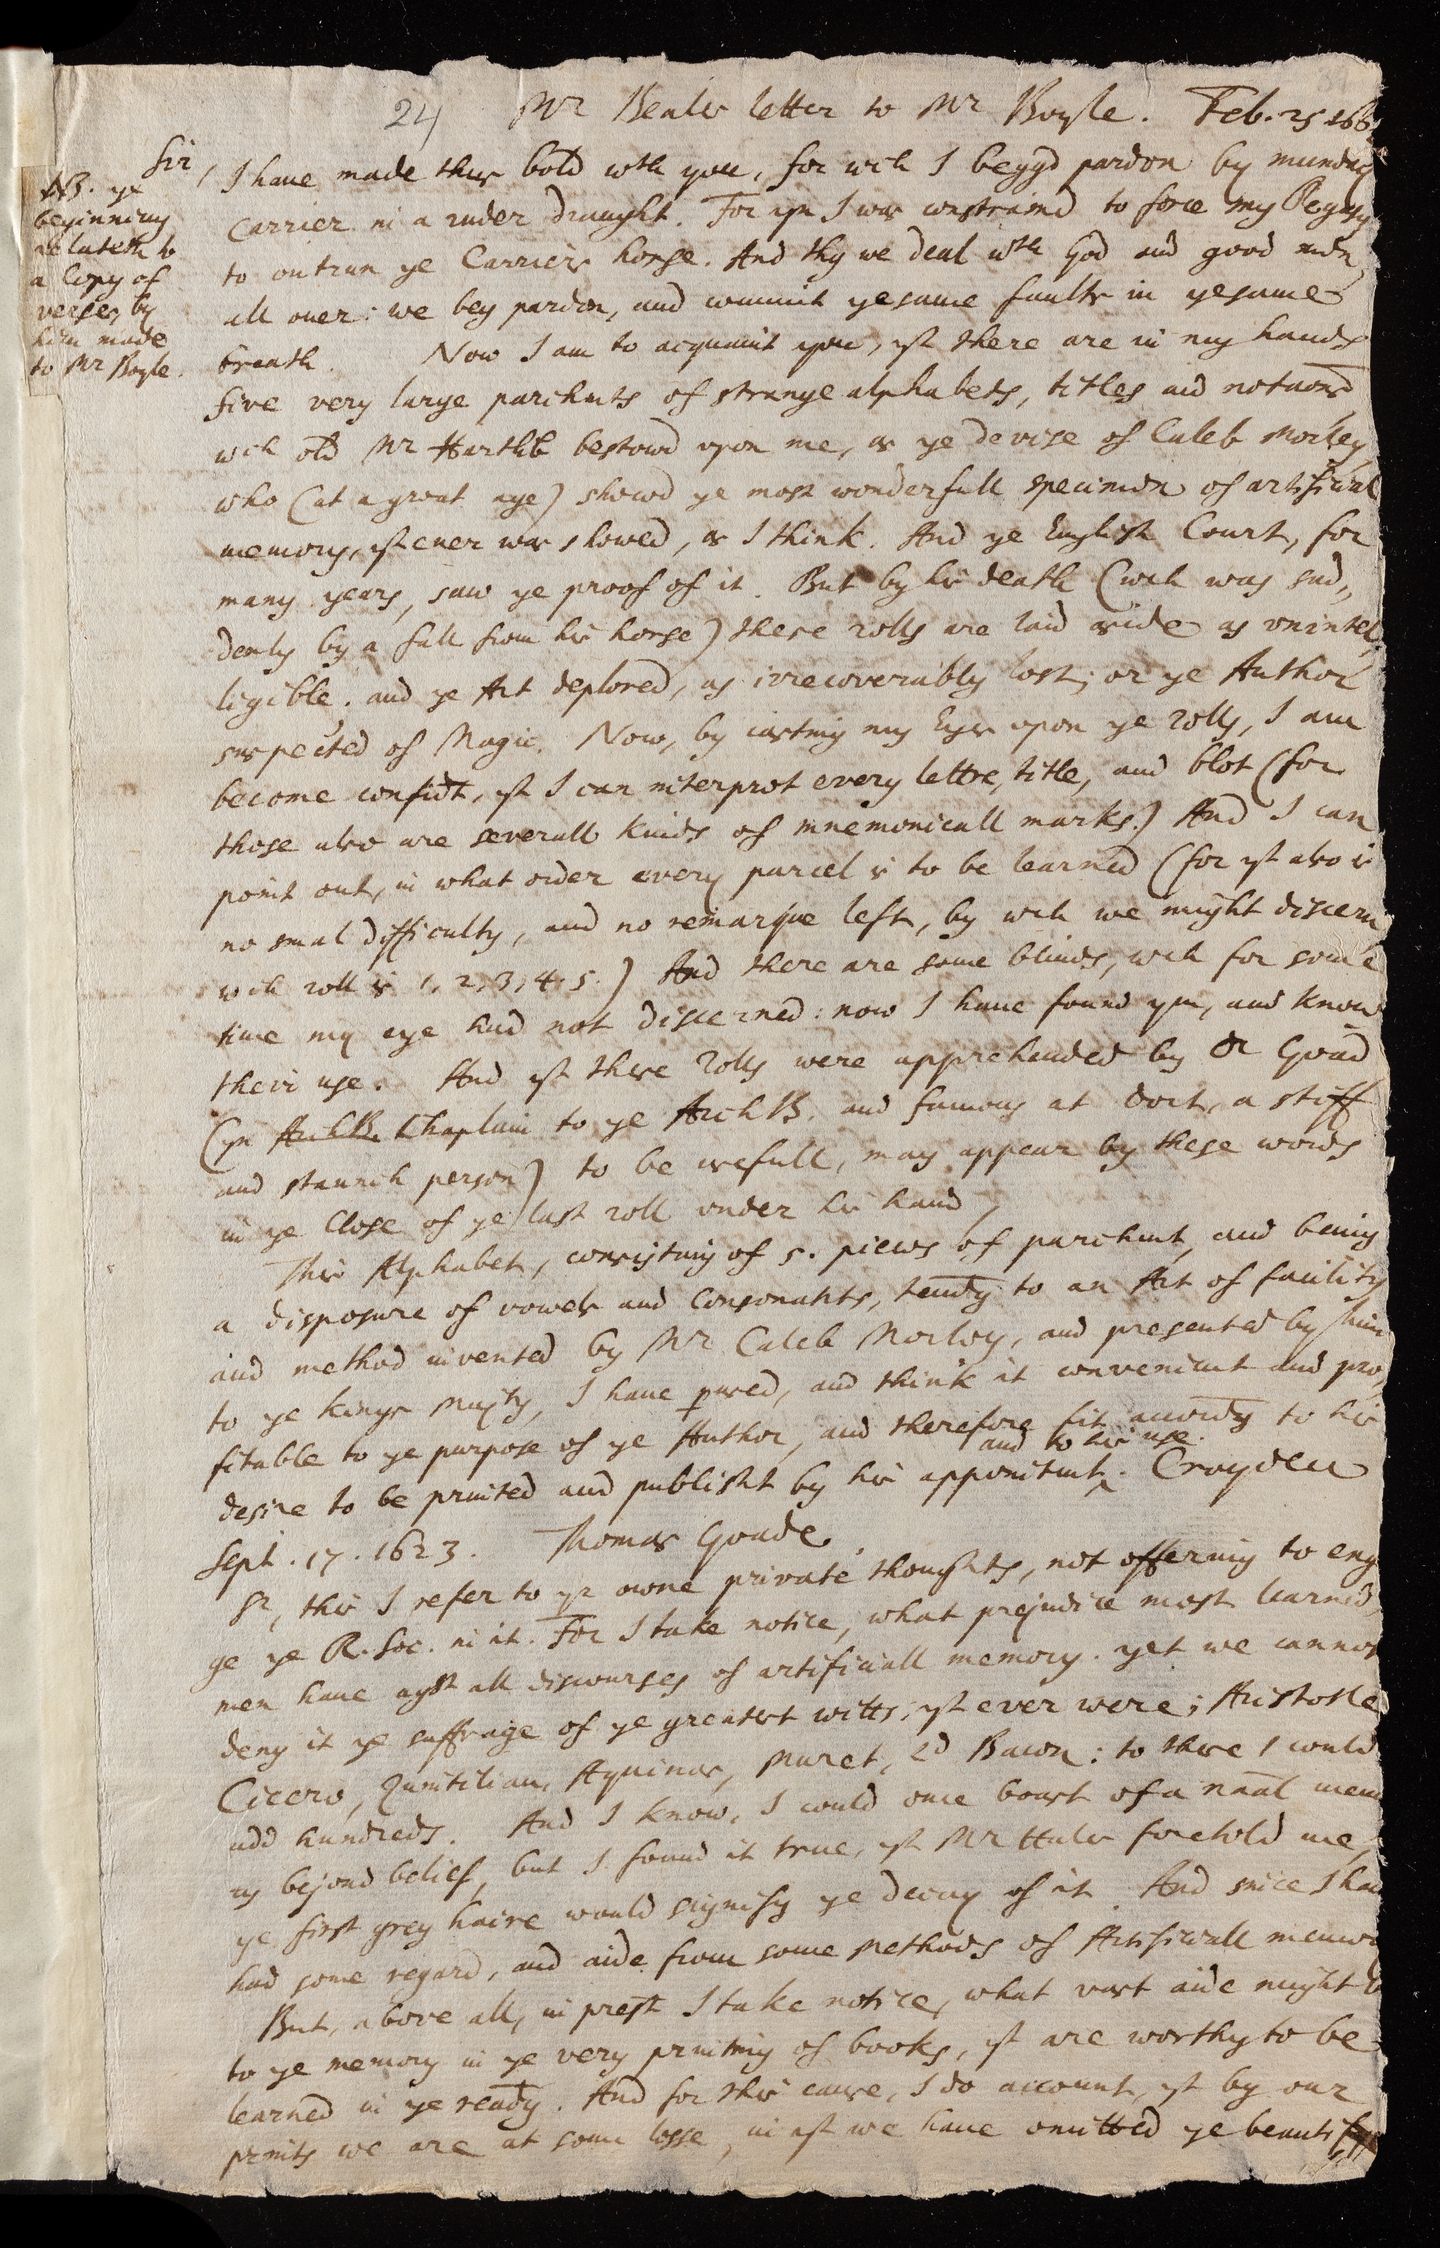 24 Mr Beals letter to Mr Boyle. Feb. 25 166
NB. ye
beginning
relateth to
a Copy of
verses by
him made
to Mr Boyle.
Sir, I have made thus bold wth you, for wch I beggd pardon by mundays
Carrier in a ruder draught. For yn I was constraind to force my Pegasus
to outrun ye Carriers horse. And thus we deal wth God and good men,
all over: we beg pardon, and commit ye same faults in ye same
breath. Now I am to acquaint you, yt there are in my hands
five very large parchmts of strange alphabets, titles and notaons
wch old Mr Hartlib bestowd upon me, as ye devise of Caleb Morley,
who (at a great age) showd ye most wonderfull specimen of artificial
memory, yt ever was showed, as I think. And ye English Court, for
many years, saw ye proof of it. But by his death (wch was sud„
denly by a fall from his horse) these rolls are laid aside as unintel,
ligible. and ye Art deplored, as irrecoverably lost; or ye Author
suspected of Magic. Now, by casting my Eyes upon ye rolls, I am
become confidt, yt I can interpret every lettre, title, and blot (for
those also are severall kinds of mnemonicall marks.) And I can
point out, in what order every parcel is to be learned (for yt also is
no smal difficulty, and no remarque left, by wch we might discern
wch roll is 1, 2, 3, 4, 5.) And there are some blinds, wch for some
time my eye had not discerned: now I have found ym, and know
their use. And yt these rolls were apprehended by Dr Goad
(yn Arch B. Chaplain to ye Arch B. and famous at Dort, a stiff
and staunch person) to be usefull, may appear by these words
in ye Close of ye last roll under his hand,
This Alphabet, consisting of 5. pieces of parchmt, and being
a disposure of vowels and Consonants, tending to an Art of facility
and method invented by Mr Caleb Morley, and presented by him
to ye kings Majty, I have pused, and think it convenient and pro,
fitable to ye purpose of ye Author, and therefore fit according to his
desire to be printed and publisht by his appointmt and to his use. Croyden
Sept. 17. 1623. Thomas Goade.
Sr, this I refer to yr owne private thoughts, not offering to enga
ge ye R. Soc. in it. For I take notice, what prejudice most learned
men have agst all discourses of artificiall memory. yet we cannot
deny it ye suffrage of ye greatest witts, yt ever were; Aristotle
Cicero, Quintilian, Aquinas, Muret, Ld Bacon: to these I could
add hundreds. And I know, I could once boast of a naal memo
ry beyond belief, but I found it true, yt Mr Hales foretold me,
ye first grey haire would signify ye decay of it. And since I have
had some regard, and aide from some Methods of Artificiall memory
But, above all, in prest I take notice, what vast aide might be
to ye memory in ye very printing of books, yt are worthy to be
learned in ye reading. And for this cause, I do account, yt by our
prints we are at some losse, in yt we have omitted ye beautif